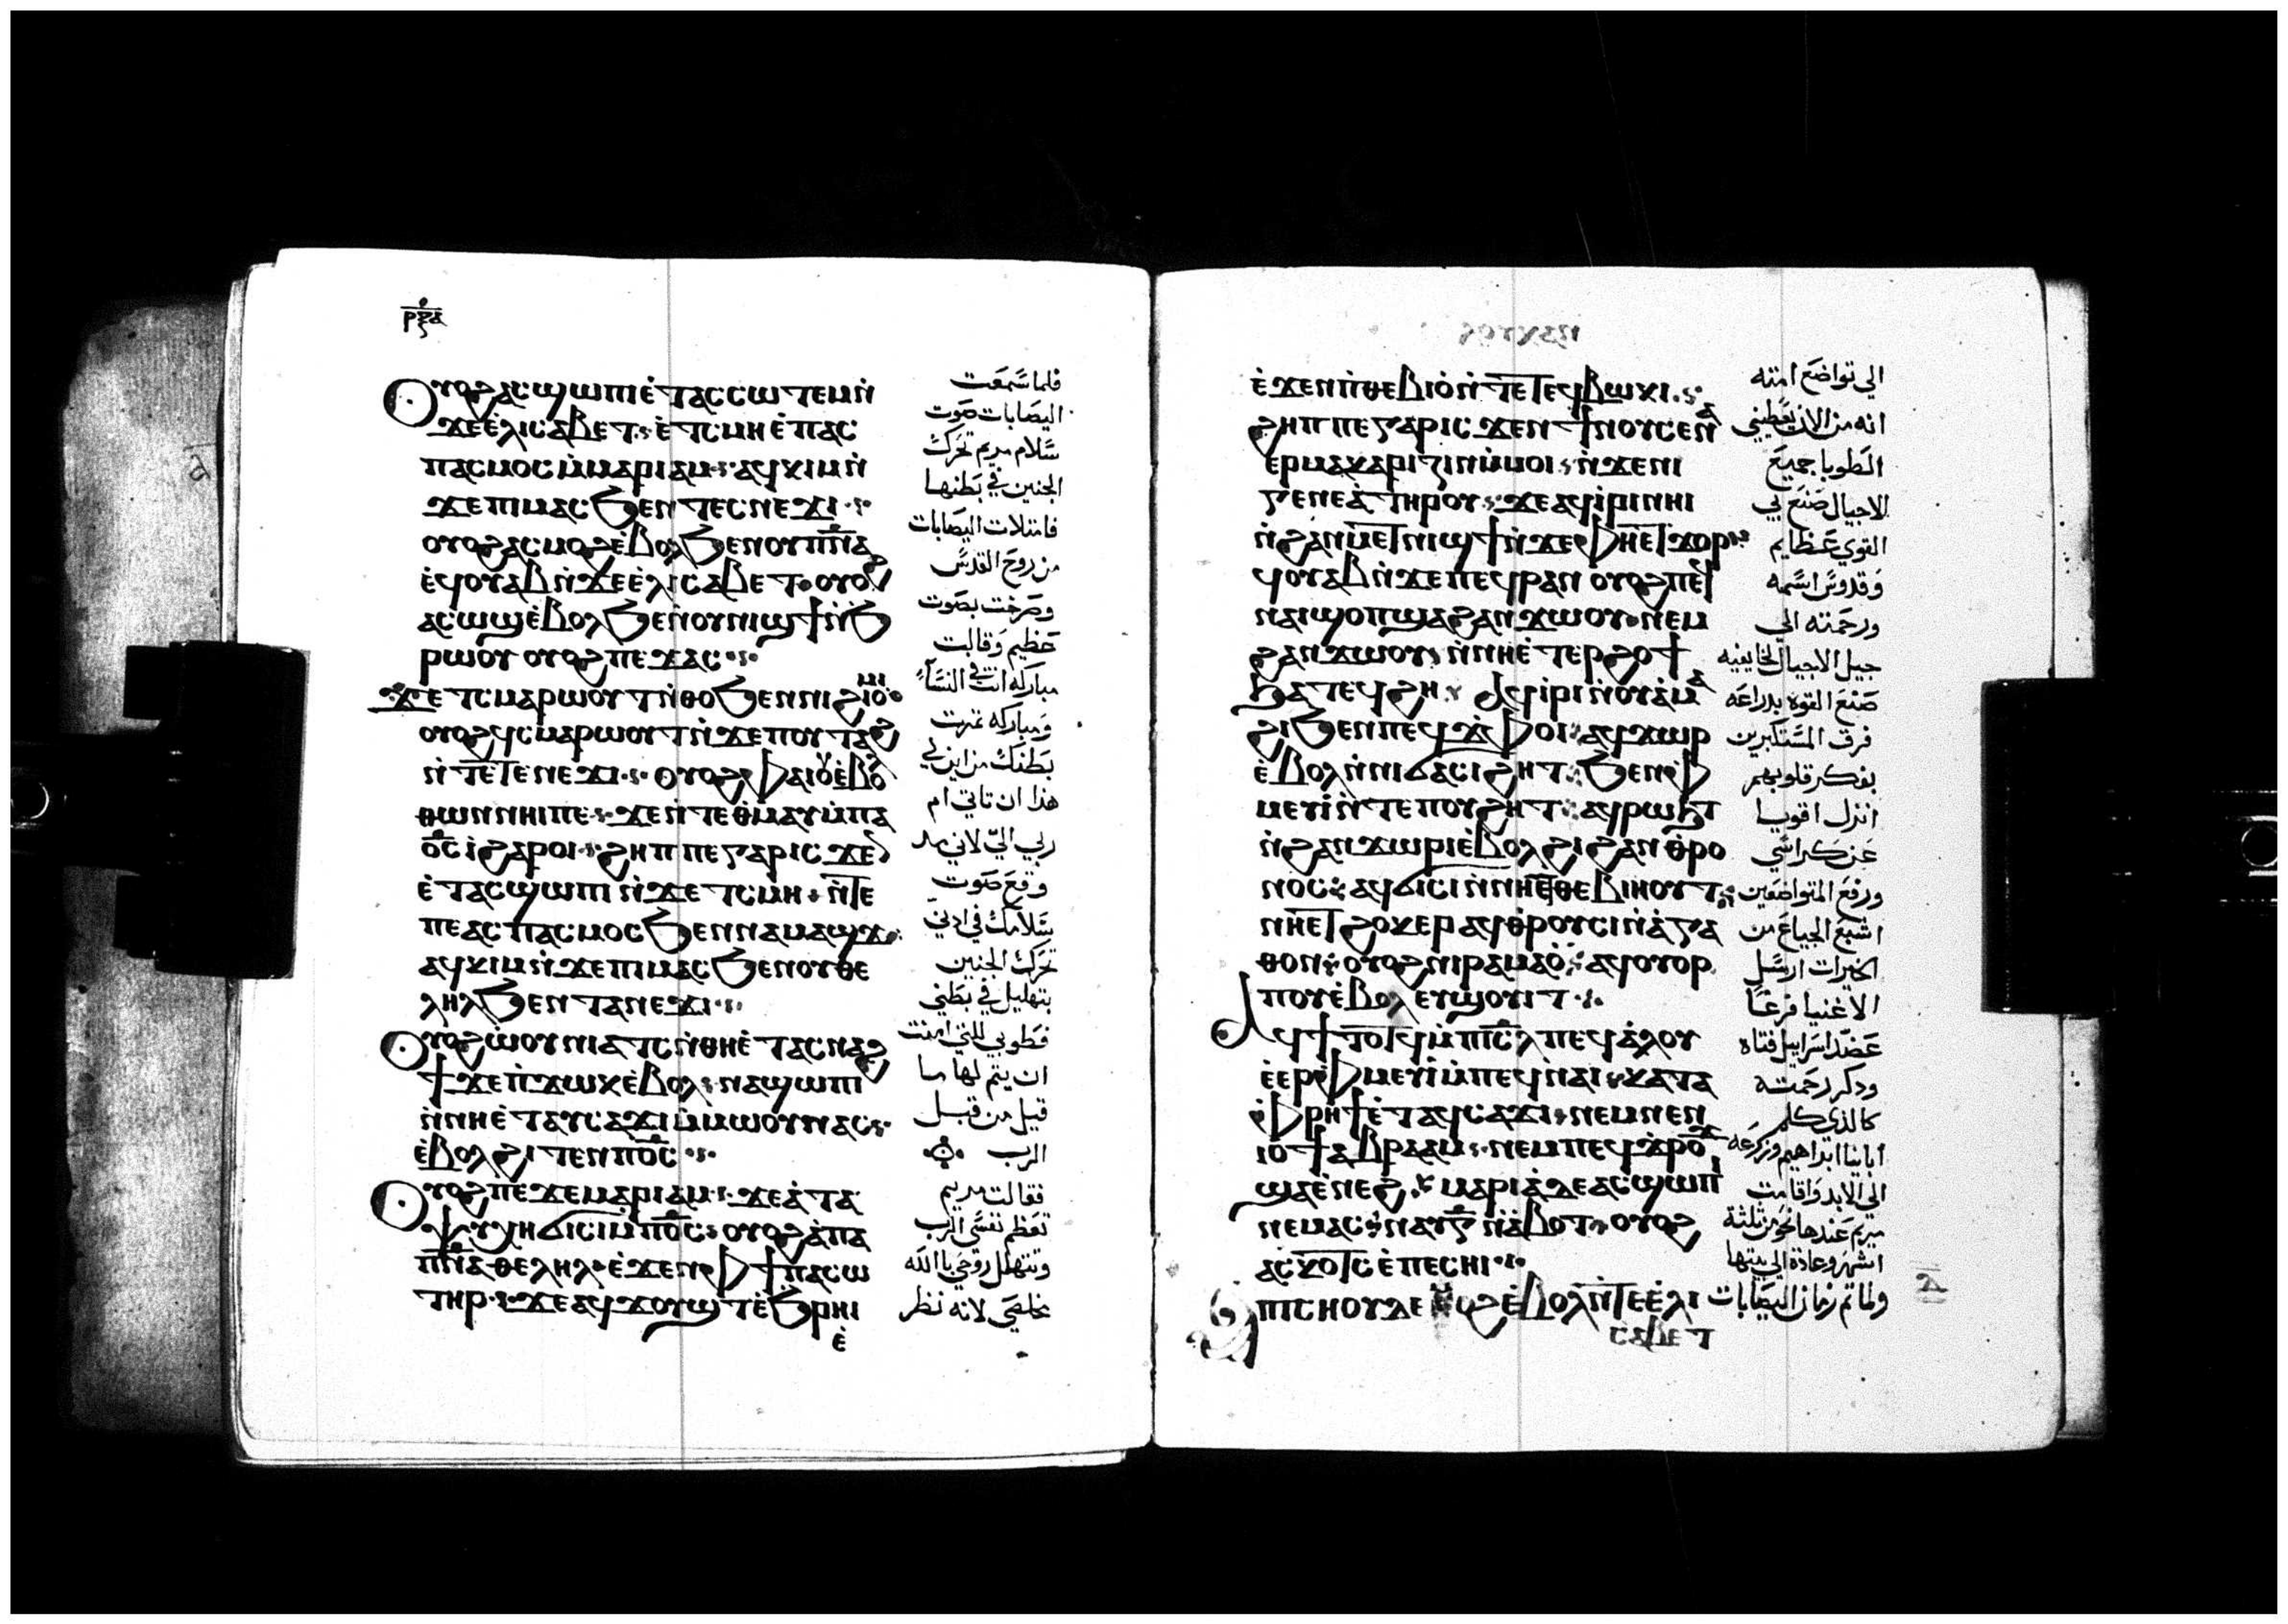 ⲣⲝⲁ
Ⲟⲩⲟϩ ⲁⲥϣⲱⲡⲓ ⲉ̀ⲧⲁⲥⲥⲱⲧⲉⲙ ⲛ̀
ϫⲉ ⲉ̀ⲗⲓⲥⲁⲃⲉⲧ ⲉ̀ⲧⲥⲙⲏ ⲉ̀ⲡⲁⲥ
ⲡⲁⲥⲙⲟⲥ ⲙ̀ⲙⲁⲣⲓⲁⲙ ⲁϥⲕⲓⲙ ⲛ̀
ϫⲉ ⲡⲓⲙⲁⲥ ϧⲉⲛ ⲧⲉⲥⲛⲉϫⲓ
ⲟⲩⲟϩ ⲁⲥⲙⲟϩ ⲉ̀ⲃⲟⲗ ϧⲉⲛ ⲟⲩⲡ̅ⲛ̅ⲁ̅
ⲉ̀ϥⲟⲩⲁⲃ ⲛ̀ϫⲉ ⲉ̀ⲗⲓⲥⲁⲃⲉⲧ ⲟⲩⲟϩ
ⲁⲥⲱϣ ⲉ̀ⲃⲟⲗ ϧⲉⲛ ⲟⲩⲛⲓϣϯ ⲛ̀ϧ
ⲣⲱⲟⲩ ⲟⲩⲟϩ ⲡⲉϫⲁⲥ
ϫⲉ ⲧⲥⲙⲁⲣⲱⲟⲩⲧ ⲛ̀ⲑⲟ ϧⲉⲛ ⲛⲓϩⲓⲟⲙⲓ
ⲟⲩⲟϩ ϥⲥⲙⲁⲣⲱⲟⲩⲧ ⲛ̀ϫⲉ ⲡⲟⲩⲧⲁϩ
ⲛ̀ⲧⲉ ⲧⲉⲛⲉϫⲓ ⲟⲩⲟϩ ⲫⲁⲓ ⲟⲩⲉ̀ⲃⲟⲗ
ⲑⲱⲛ ⲛⲏⲓ ⲡⲉ ϫⲉ ⲛ̀ⲧⲉ ⲑⲙⲁⲩ ⲙ̀ⲡⲁ
ⲟ̅ⲥ̅ ⲓ̀ ϩⲁⲣⲟⲓ ϩⲏⲡⲡⲉ ⲅⲁⲣ ⲓⲥϫⲉⲛ
ⲉ̀ⲧⲁⲥϣⲱⲡⲓ ⲛ̀ϫⲉ ⲧⲥⲙⲏ ⲛ̀ⲧⲉ
ⲡⲉⲁⲥⲡⲁⲥⲙⲟⲥ ϧⲉⲛ ⲛⲁⲙⲁϣϫ
ⲁϥⲕⲓⲙ ⲛ̀ϫⲉ ⲡⲓⲙⲁⲥ ϧⲉⲛ ⲟⲩⲑⲉ
ⲗⲏⲗ ϧⲉⲛ ⲧⲁⲛⲉϫⲓ
Ⲟⲩⲟϩ ⲱ̀ⲟⲩⲛⲓⲁⲧⲥ ⲛ̀ⲑⲏ ⲉ̀ⲧⲁⲥⲛⲁϩ
ϯ ϫⲉ ⲡ̀ϫⲱⲕ ⲉ̀ⲃⲟⲗ ⲛⲁϣⲱⲡⲓ
ⲛ̀ⲛⲏ ⲉ̀ⲧⲁⲩⲥⲁϫⲓ ⲙ̀ⲙⲱⲟⲩ ⲛⲁⲥ
ⲉ̀ⲃⲟⲗ ϩⲓⲧⲉⲛ ⲡ̅ⲟ̅ⲥ̅
Ⲟⲩⲟϩ ⲡⲉϫⲉ ⲙⲁⲣⲓⲁⲙ ϫⲉ ⲁ̀ ⲧⲁ
ⲯⲩⲭⲏ ϭⲓⲥⲓ ⲙ̀ⲡ̅ⲟ̅ⲥ̅ ⲟⲩⲟϩ ⲁ̀ ⲡⲁ
ⲡ̅ⲛ̅ⲁ̅ ⲑⲉⲗⲏⲗ ⲉ̀ϫⲉⲛ ⲫϯ ⲡⲁⲥⲱ
ⲧⲏⲣ ϫⲉ ⲁϥϫⲟⲩϣⲧ ⲉ̀ϧⲣⲏⲓ
ⲉ̀
فلما سمعت
اليصابات صوت
سلام مريم تحرك
الجنين في بطنها
فامتلات اليصابات
من روح القدس
وصرخت بصوت
عظيم وقالت
مباركه انت في النساء
ومباركه ثمرت
بطنك من اين لي
هذا ان تاتي ام
ربي الي لاني مد
وقع صوت
سلامك في ادني
تحرك الجنين
بتهليل في بطني
فطوبي للتي امنت
ان يتم لها ما
قيل من قبل
الرب
فقالت مريم
تعظم نفسي الرب
وتتهلل روحي باالله
مخلصي لانه نظر
ⲉ̀ϫⲉⲛ ⲡ̀ⲑⲉⲃⲓⲟ ⲛ̀ⲧⲉ ⲧⲉϥⲃⲱⲕⲓ
ϩⲏⲡⲡⲉ ⲅⲁⲣ ⲓⲥϫⲉⲛ ϯⲛⲟⲩ ⲥⲉⲛⲁ
ⲉⲣⲙⲁⲕⲁⲣⲓⲍⲓⲛ ⲙ̀ⲙⲟⲓ ⲛ̀ϫⲉ ⲛⲓ
ⲅⲉⲛⲉⲁ̀ ⲧⲏⲣⲟⲩ ϫⲉ ⲁϥⲓ̀ⲣⲓ ⲛⲏⲓ
ⲛ̀ϩⲁⲛⲙⲉⲧⲛⲓϣϯ ⲛ̀ϫⲉ ⲫⲏⲉⲧϫⲟⲣ
ϥⲟⲩⲁⲃ ⲛ̀ϫⲉ ⲡⲉϥⲣⲁⲛ ⲟⲩⲟϩ ⲡⲉϥ
ⲛⲁⲓ ϣⲟⲡ ϣⲁ ϩⲁⲛϫⲱⲟⲩ ⲛⲉⲙ
ϩⲁⲛϫⲱⲟⲩ ⲛ̀ⲛⲏ ⲉ̀ⲧⲉⲣϩⲟϯ
ϧⲁ ⲧⲉϥϩⲏ Ⲁϥⲓ̀ⲣⲓ ⲛ̀ⲟⲩⲁ̀ⲙⲁ
ϩⲓ ϧⲉⲛ ⲡⲉϥϫ̀ⲫⲟⲓ ⲁϥϫⲱⲣ
ⲉ̀ⲃⲟⲗ ⲛ̀ⲛⲓϭⲁⲥⲓϩⲏⲧ ϧⲉⲛ ⲫ
ⲙⲉⲩⲓ̀ ⲛ̀ⲧⲉ ⲡⲟⲩϩⲏⲧ ⲁϥⲣⲱϧⲧ
ⲛ̀ϩⲁⲛϫⲱⲣⲓ ⲉ̀ⲃⲟⲗ ϩⲓ ϩⲁⲛⲑⲣⲟ
ⲛⲟⲥ ⲁϥϭⲓⲥⲓ ⲛ̀ⲛⲏⲉⲧⲑⲉⲃⲓⲏⲟⲩⲧ
ⲛⲏⲉⲧϩⲟⲕⲉⲣ ⲁϥⲑⲣⲟⲩⲥⲓ ⲛ̀ⲁ̀ⲅⲁ
ⲑⲟⲛ ⲟⲩⲟϩ ⲛⲓⲣⲁⲙⲁⲟ̀ ⲁϥⲟⲩⲟⲣ
ⲡⲟⲩ ⲉ̀ⲃⲟⲗ ⲉⲩϣⲟⲩⲓⲧ
Ⲁϥϯⲧⲟⲧϥ ⲙ̀ⲡ̅ⲓ̅ⲥ̅ⲗ̅ ⲡⲉϥⲁ̀ⲗⲟⲩ
ⲉ̀ⲉⲣⲫⲙⲉⲩⲓ̀ ⲙ̀ⲡⲉϥⲛⲁⲓ ⲕⲁⲧⲁ
ⲫⲣⲏϯ ⲉ̀ⲧⲁϥⲥⲁϫⲓ ⲛⲉⲙ ⲛⲉⲛ
ⲓⲟϯ ⲁⲃⲣⲁⲁⲙ ⲛⲉⲙ ⲡⲉϥϫ̀ⲣⲟϫ
ϣⲁ ⲉ̀ⲛⲉϩ ⲙⲁⲣⲓⲁ̀ ⲇⲉ ⲁⲥϣⲱⲡⲓ
ⲛⲉⲙⲁⲥ ⲛⲁⲩ ⲅ̅ ⲛ̀ⲁ̀ⲃⲟⲧ ⲟⲩⲟϩ
ⲁⲥⲕⲟⲧⲥ ⲉ̀ⲡⲉⲥⲏⲓ
Ⲡⲓⲥⲏⲟⲩ ⲇⲉ ϥϩ ⲉ̀ⲃⲟⲗ ⲛ̀ⲧⲉ ⲉ̀ⲗⲓ
ⲥⲁⲃⲉⲧ
الي تواضع امته
انه من الان تعطيني
الطوبا جميع
الاجيال صنع لي
القوي عظايم
وقدوس اسمه
ورحمته الي
جيل الاجيال لخايفيه
صنع القوه بدراعه
فرق المستكبرين
بفكر قلوبهم
انزل اقويا
عن كراسي
ورفع المتواضعين
اشبع الجياع من
الخيرات ارسل
الاغنيا فرغا
عضد اسراييل فتاه
ودكر رحمته
كالذي كلم
ابايناابراهيم وزرعه
الي الابد واقامت
مريم عندها نحو من ثلثة
اشهر وعادة الي بيتها
ولما تم زمان اليصابات